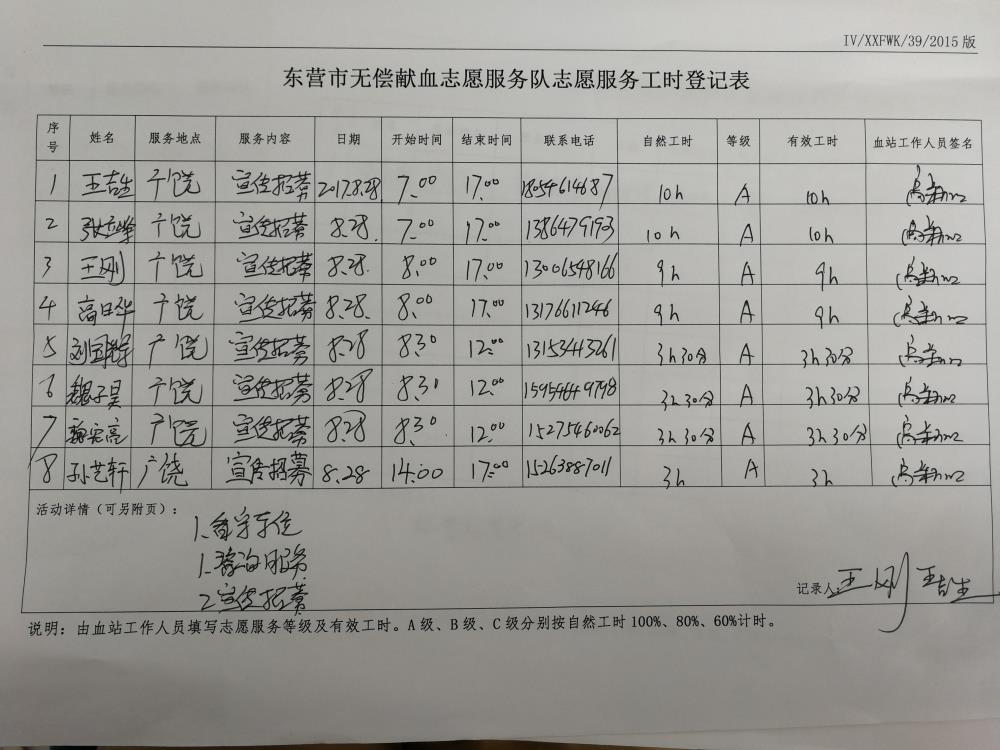 IV/XXFWK/39/2015版
东营市无偿献血志愿服务队志愿服务工时登记表
序号 姓名 服务地点 服务内容 日期 开始时间 结束时间 联系电话 自然工时 等级 有效工时 血站工作人员签名
1 王吉生 广饶 宣传招募 2017.8.28 7:00 17:00 18054614687 10h A 10h
2 广饶 宣传招募 8.28. 7:00 17:00 13864779193 10h A 10h
3 王刚 广饶 宣传招募 8.28. 8:00 17:00 13006548166 9h A 9h
4 高日华 广饶 宣传招募 8.28. 8:00 17:00 13176611246 9h A 9h
5 广饶 宣传招募 8.28 8:30 12:00 13153443261 3h30分 A 3h30分
6 魏子昊 广饶 宣传招募 8.28 8:30 12:00 15954649798 3h30分 A 3h30分
7 广饶 宣传招募 8.28 8:30 12:00 15275460062 3h30分 A 3h30分
8 孙艺轩 广饶 宣传招募 8.28 14:00 17:00 15263887011 3h A 3h
活动详情（可另附页）：
1.
1.咨询服务
2.宣传招募
记录人：王刚 王吉生
说明：由血站工作人员填写志愿服务等级及有效工时。A级、B级、C级分别按自然工时100%、80%、60%计时。